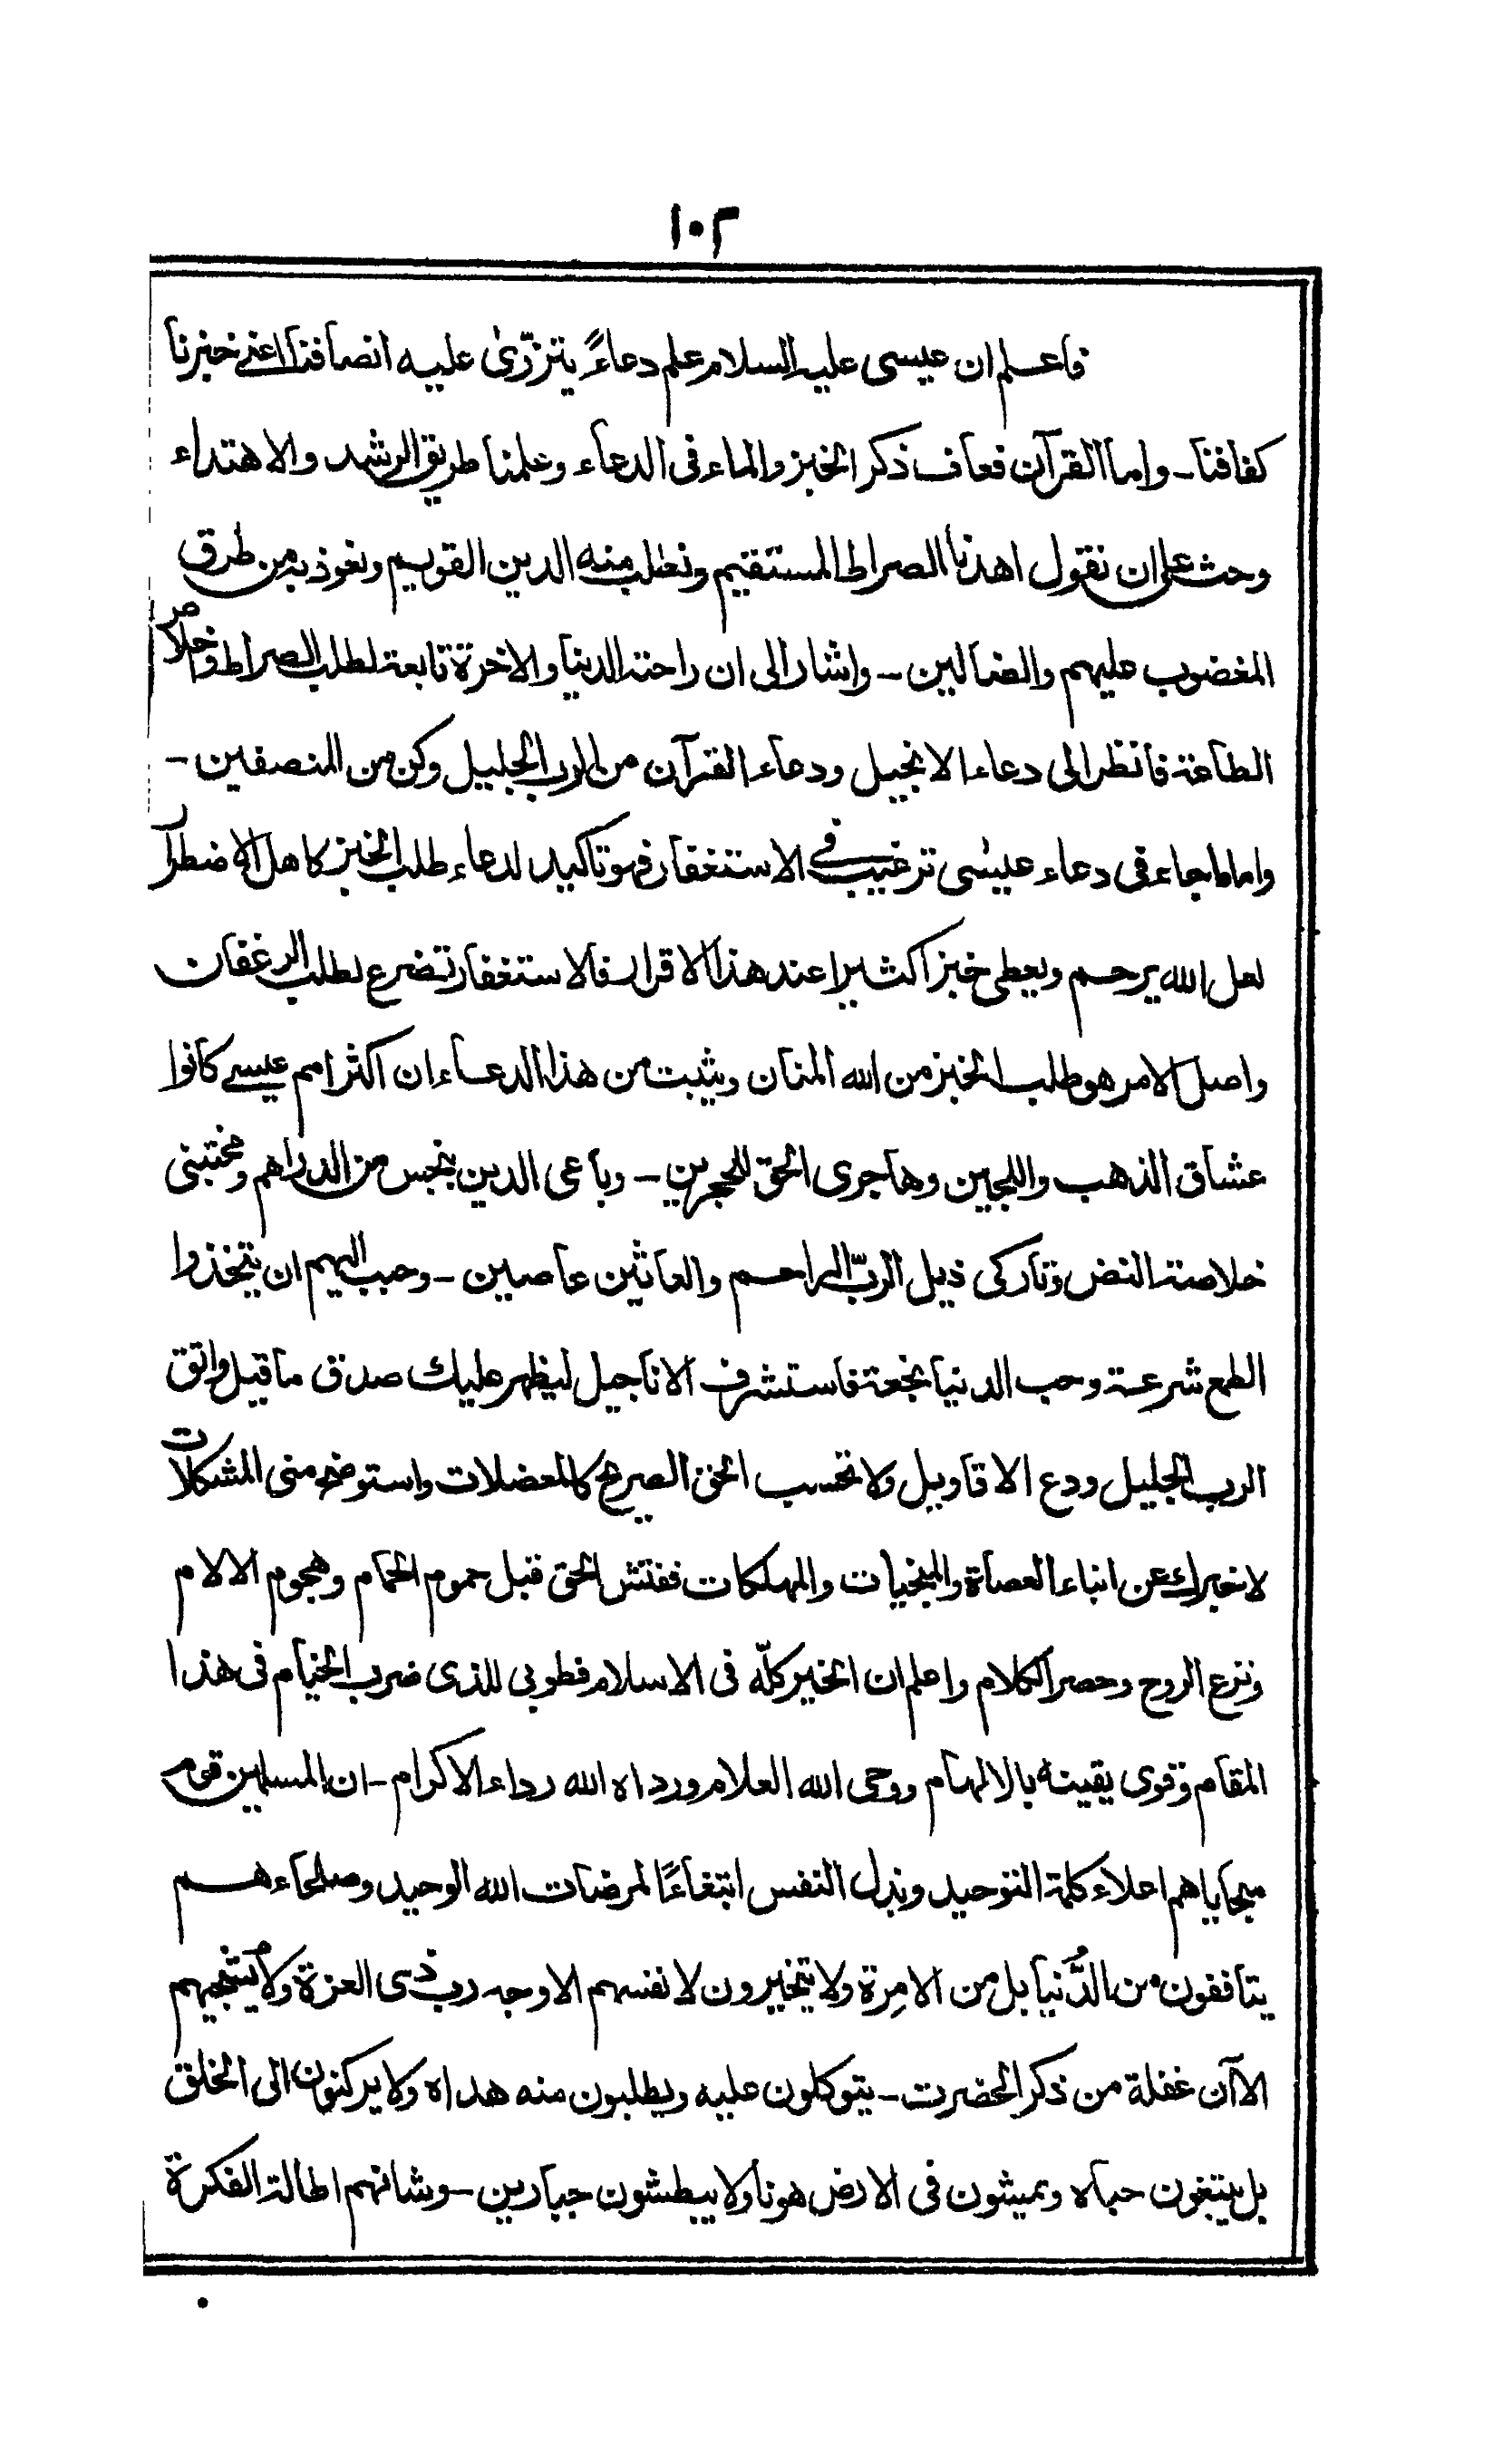 ١٠٢
فاعلم ان عيسى عليه السلام علم دعاءً يتزرّىٰ عليه انصافنا اعنے خبزنا
كفافنا ـ واما القرآن فعاف ذكر الخبز والماء فى الدعاء وعلمنا طريق الرشد والاهتداء
وحث على ان نقول اهدنا الصراط المستقيم ونطلب منه الدين القويم ونعوذ به من طرق
المغضوب عليهم والضالين ـ واشار الى ان راحة الدنيا والاخرة تابعة لطلب الصراط واخلاص
الطاعة فانظر الى دعاء الانجيل ودعاء القرآن من الرب الجليل وكن من المنصفين ـ
واما ما جاء فى دعاء عيسٰى ترغيب فے الاستغفار فهو تاكيد لدعاء طلب الخبز كاهل الاضطرار
لعل الله يرحم ويعطى خبزا كثيرا عند هذا الاقرار فالاستغفار تضرع لطلب الرغفان
واصل الامر هو طلب الخبز من الله المنان ويثبت من هذا الدعاء ان اكثر امم عيسے كانوا
عشاق الذهب واللجين وهاجرى الحق للحجرين ـ وباعى الدين ببخس من الدراهم ومختبنى
خلاصة النض وتاركى ذيل الربّ الراحم والعاثين عاصين ـ وحبب اليهم ان يتخذوا
الطمع شرعة وحب الدنيا نجعة فاستشرف الاناجيل ليظهر عليك صدق ما قيل واتق
الرب الجليل ودع الاقاويل ولا تحسب الحق الصريح كالمعضلات واستوضح منى المشكلات
لاخبرك عن انباء العصاة والمنجيات والمهلكات ففتش الحق قبل حموم الحمام وهجوم الالام
ونزع الروح وحصر الكلام واعلم ان الخير كلّه فى الاسلام فطوبى للذى ضرب الخيام فى هذا
المقام وقوى يقينه بالالهام ووحى الله العلام ورداه الله رداء الاكرام ـ ان المسلمين قوم
سجاياهم اعلاء كلمة التوحيد وبذل النفس ابتغاءًا لمرضات الله الوحيد وصلحاءهم
يتاففون من الدُّنيا بل من الامِرة ولا يتخيرون لانفسهم الا وجه رب ذى العزة ولا يشجيهم
الا آن غفلة من ذكر الحضرت ـ يتوكلون عليه ويطلبون منه هداه ولا يركنون الى الخلق
بل يبتغون حباه ويمشون فى الارض هونا ولا يبطشون جبارين ـ وشانهم اطالة الفكرة